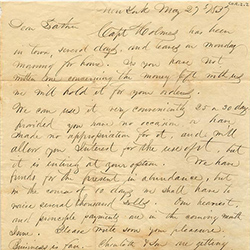 New York May 27th 1837
Dear Father
Capt Holmes has been
in town, several days, and leaves on Monday
morning for home. As you have not
written me concerning the money left with us
we will hold it for your orders.
We can use it very conveniently 25 or 30 days
provided you have no occasion or have
made no appropriation for it, and will
allow you Interest for the use of it, but
it is entirely at your option. We have
funds for the present in abundance, but
in the course of 10 days we shall have to
raise several thousand dolls. Our heaviest
and principle payments are in the coming month
June. Please write soon your pleasure.
Business is fair. are getting